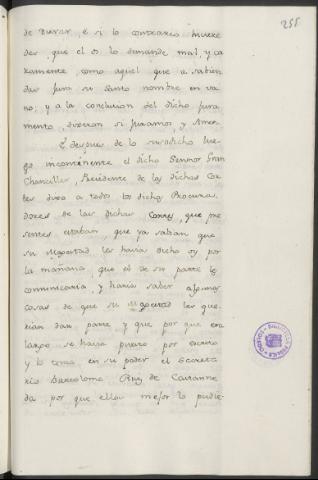 255
de Durar, é si lo contrario hiciere
des, que el os lo demande mal, y ca
ramente, como aquel que a sabien
das jura su santo nombre en va
no; y a la conclusion del dicho jura
mento, dixeran si juramos, y Amen.
É despues de lo susodicho lue
go incontinente el dicho Señor Gran
Chanciller, Presidente de los dichos Cor
tes dixo a todos los dichos Procura
dores de las dichas Cortes, que pre
sentes estaban, que ya sabian que
su Magestad les havia dicho oy por
la mañana, que el de su parte les
comunicaria, y haria saber algunas
cosas de que su Magestad les que
rian dar parte, y que por que era
largo se havia puesto por escrito
y lo tenia en su poder el Secreta
rio Bartolome Ruiz de Castañe
da por que ellos mejor lo pudie-